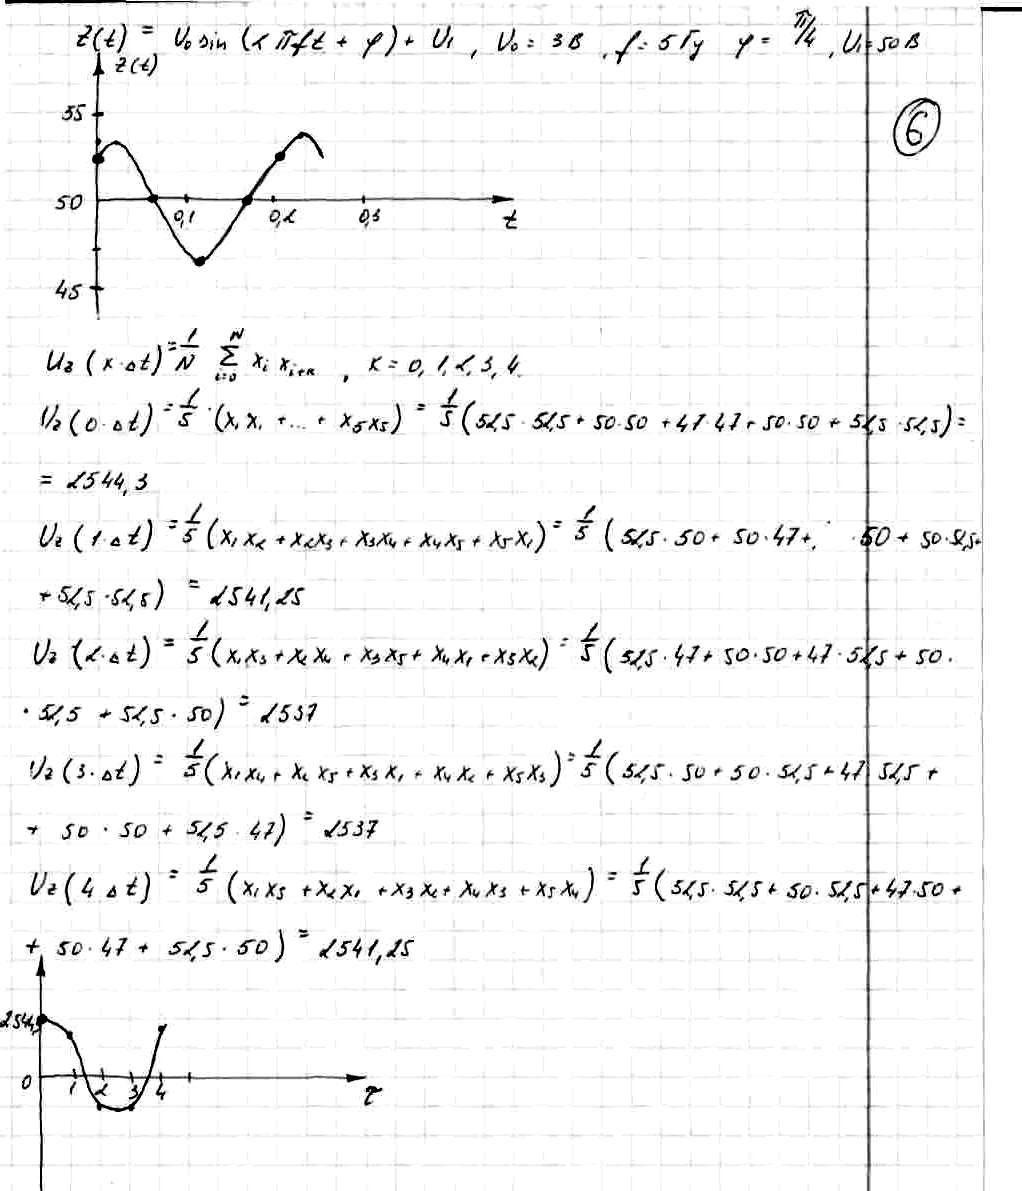 Z(t) = U₀ sin (2πft + φ) + U₁ , U₀ = 3В , f = 5Гц φ = π/4 , U₁ = 50В
Z(t)
55
6
50
0,1 0,2 0,3
t
45
U₂ (к·Δt) = 1/N Σ(i=0..N) xᵢ xᵢ₊ₖ , к = 0, 1, 2, 3, 4.
U₂ (0·Δt) = 1/5 · (x₁x₁ + ... + x₅x₅) = 1/5 (52,5 · 52,5 + 50·50 + 47·47 + 50·50 + 52,5 · 52,5) =
= 2544,3
U₂ (1·Δt) = 1/5 (x₁x₂ + x₂x₃ + x₃x₄ + x₄x₅ + x₅x₁) = 1/5 (52,5 · 50 + 50 · 47 + · 50 + 50·52,5+
+ 52,5 · 52,5) = 2541,25
U₂ (2·Δt) = 1/5 (x₁x₃ + x₂x₄ + x₃x₅ + x₄x₁ + x₅x₂) = 1/5 (52,5 · 47 + 50·50 + 47 · 52,5 + 50 ·
· 52,5 + 52,5 · 50) = 2537
U₂ (3·Δt) = 1/5 (x₁x₄ + x₂x₅ + x₃x₁ + x₄x₂ + x₅x₃) = 1/5 (52,5 · 50 + 50 · 52,5 + 47 52,5 +
+ 50 · 50 + 52,5 · 47) = 2537
U₂ (4 Δt) = 1/5 (x₁x₅ + x₂x₁ + x₃x₂ + x₄x₃ + x₅x₄) = 1/5 (52,5 · 52,5 + 50 · 52,5 + 47·50 +
+ 50·47 + 52,5 · 50) = 2541,25
2544,3
0 1 2 3 4
τ